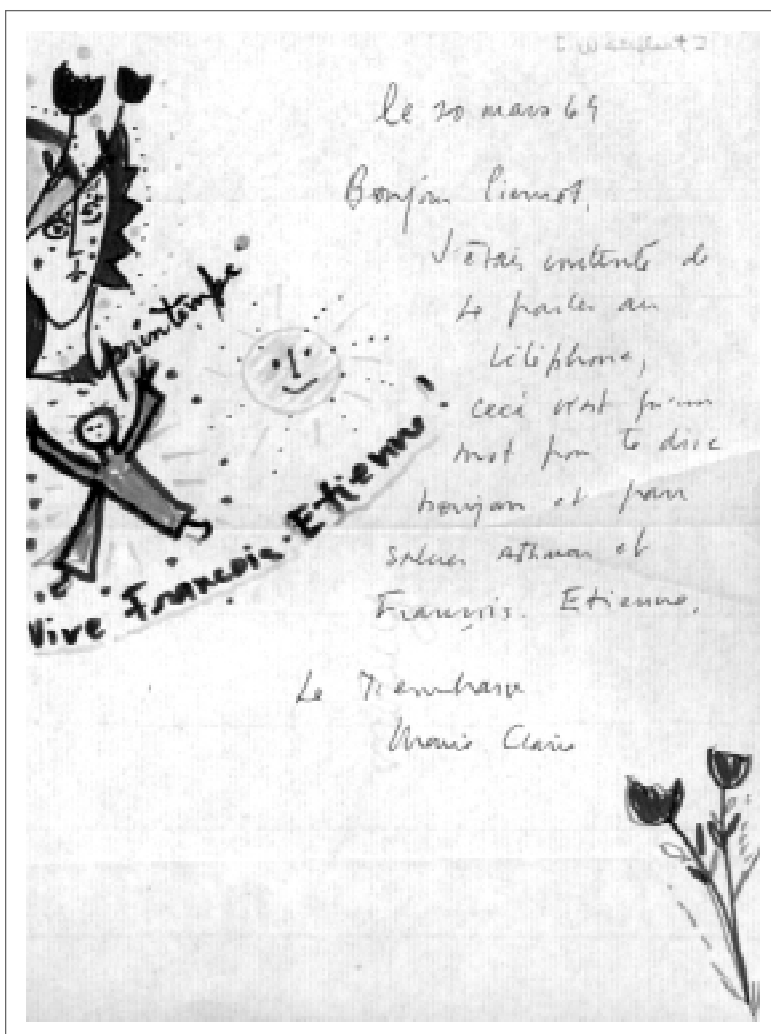 le 20 mars 69
Bonjour Pierrot,
J'étais contente de
te parler au
téléphone,
ceci n'est qu'un
mot pour te dire
bonjour et pour
saluer et
François. Etienne.
Je t'embrasse
Marie Claire
printemps
Vive François. Etienne!